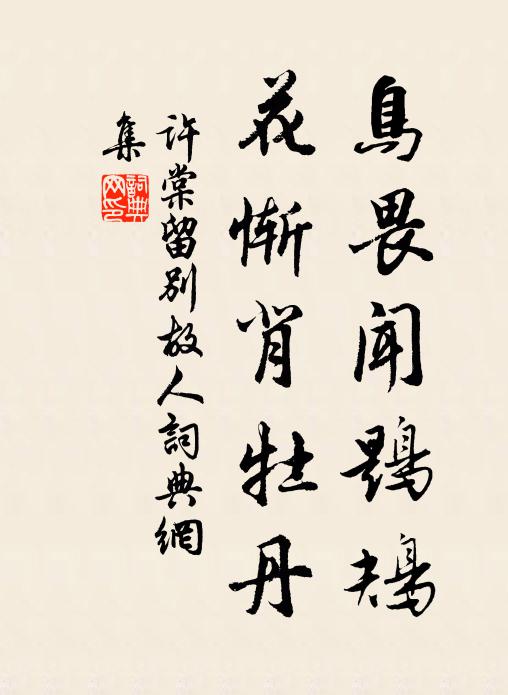 鳥畏聞鶗鴂
花慚背牡丹
許棠留別故人詞典網
集
詞典
网印